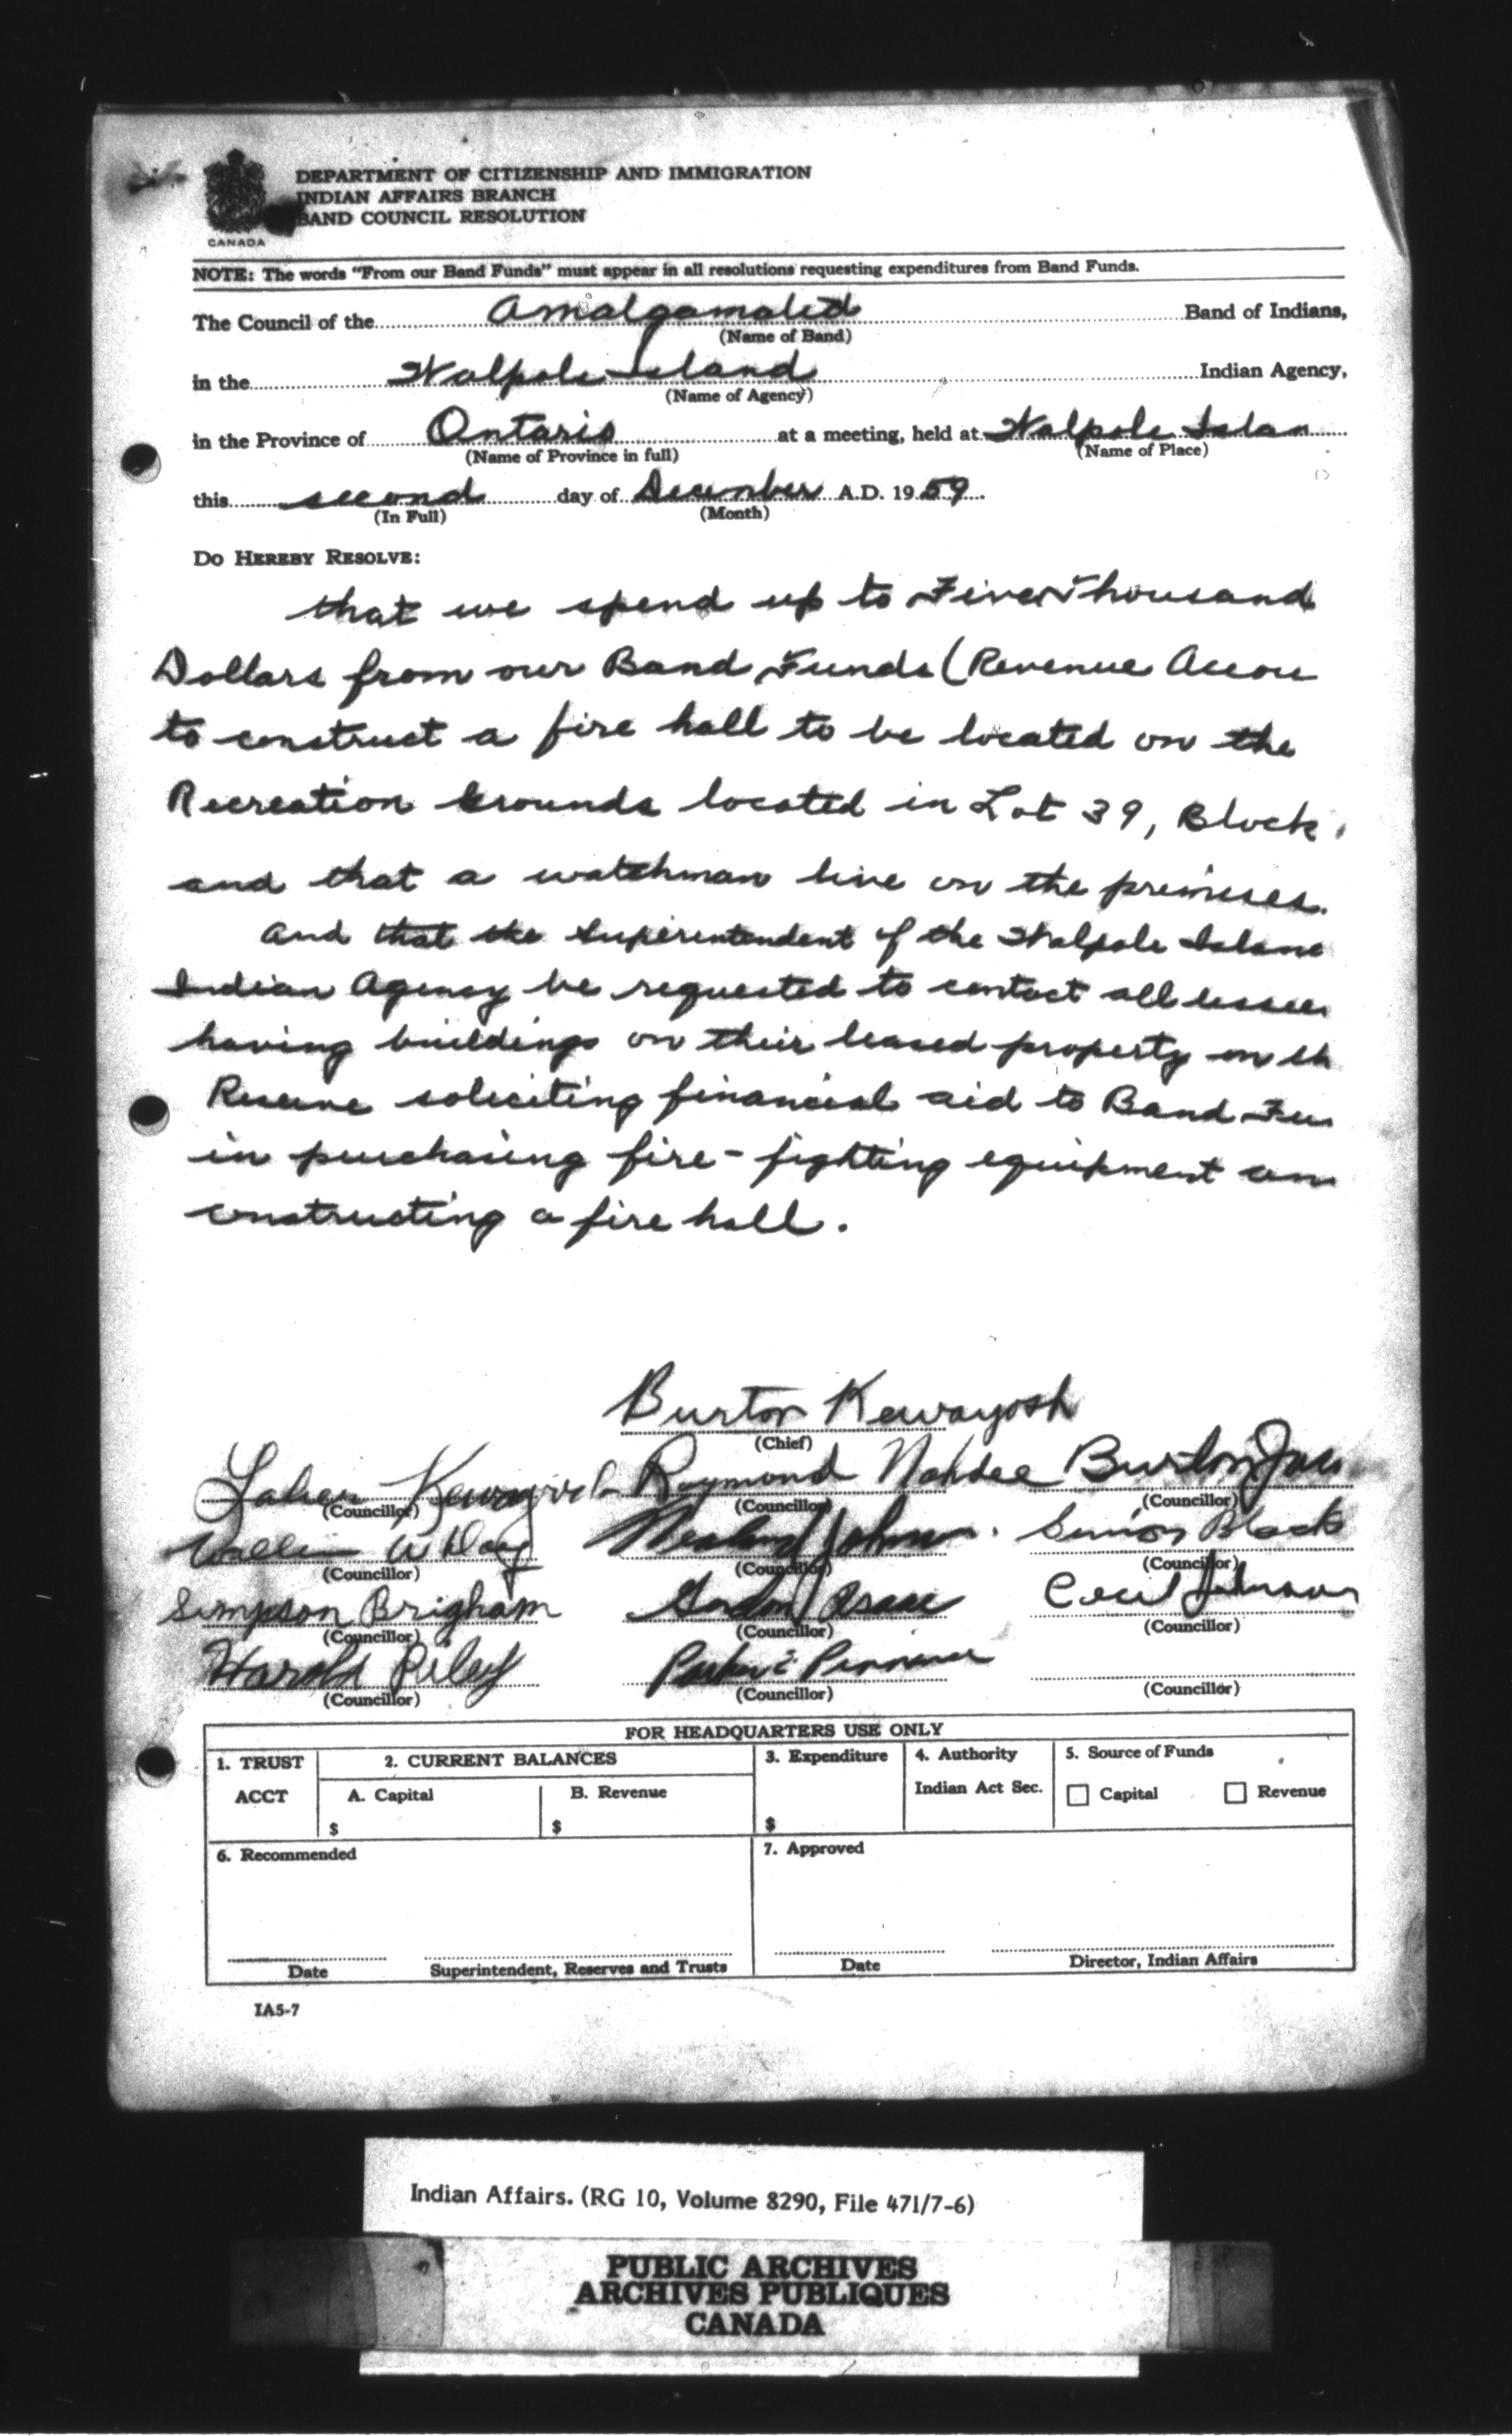 DEPARTMENT OF CITIZENSHIP AND IMMIGRATION
INDIAN AFFAIRS BRANCH
BAND COUNCIL RESOLUTION
CANADA
NOTE: The words "From our Band Funds" must appear in all resolutions requesting expenditures from Band Funds.
The Council of the Amalgamated Band of Indians,
(Name of Band)
in the Walpole Island Indian Agency,
(Name of Agency)
in the Province of Ontario at a meeting, held at Walpole Islan
(Name of Province in full) (Name of Place)
this second day of December A.D. 1959.
(In Full) (Month)
DO HEREBY RESOLVE:
that we spend up to Five Thousand
Dollars from our Band Funds (Revenue Accou
to construct a fire hall to be located on the
Recreation Grounds located in Lot 39, Block
and that a watchman live on the premises.
And that the Superintendent of the Walpole Island
Indian Agency be requested to contact all lessees
having buildings on their leased property on th
Reserve soliciting financial aid to Band Fun
in purchasing fire-fighting equipment an
constructing a fire hall.
Burton Kewayosh
(Chief)
Kewayosh Raymond Nahdee Burton Jac
(Councillor) (Councillor) (Councillor)
Johns. Black
(Councillor) (Councillor) (Councillor)
Simpson Brigham Isaac Cecil Johnson
(Councillor) (Councillor) (Councillor)
Harold Riley
(Councillor) (Councillor) (Councillor)
FOR HEADQUARTERS USE ONLY
1. TRUST ACCT 2. CURRENT BALANCES 3. Expenditure 4. Authority 5. Source of Funds
A. Capital B. Revenue Indian Act Sec. Capital Revenue
$ $ $
6. Recommended 7. Approved
Date Superintendent, Reserves and Trusts Date Director, Indian Affairs
IA5-7
Indian Affairs. (RG 10, Volume 8290, File 471/7-6)
PUBLIC ARCHIVES
ARCHIVES PUBLIQUES
CANADA